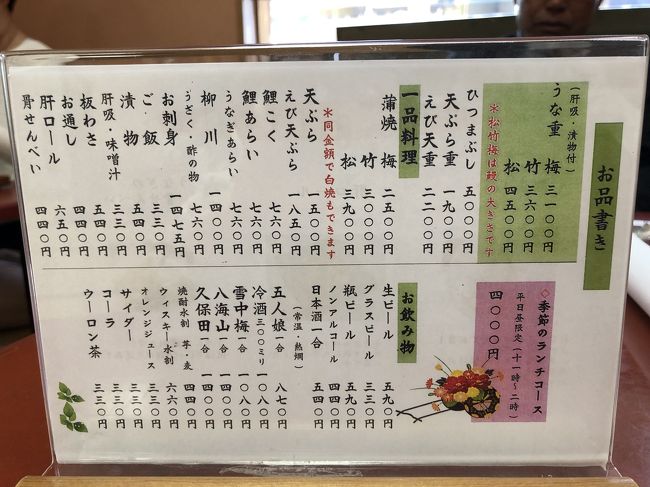 お品書き
(肝吸・漬物付)
うな重 梅 三一〇〇円
竹 三六〇〇円
松 四五〇〇円
*松竹梅は鰻の大きさです
ひつまぶし 五〇〇〇円
天ぷら重 一九〇〇円
えび天重 二二〇〇円
一品料理
蒲焼 梅 二五〇〇円
竹 三〇〇〇円
松 三九〇〇円
*同金額で白焼もできます
天ぷら 一五〇〇円
えび天ぷら 一八五〇円
鯉こく 七六〇円
鯉あらい 七六〇円
うなぎあらい
柳川 一〇〇〇円
うざく・酢の物 七六〇円
お刺身 一四七五円
ご飯 三三〇円
漬物 三三〇円
肝吸・味噌汁
板わさ 五四〇円
お通し
肝ロール 六五〇円
骨せんべい 四四〇円
◇季節のランチコース
平日昼限定(十一時〜二時)
四〇〇〇円
お飲み物
生ビール 五九〇円
グラスビール 三三〇円
瓶ビール 五九〇円
ノンアルコール 四四〇円
日本酒一合 五四〇円
(常温・熱燗)
五人娘一合 八七〇円
冷酒三〇〇ミリ 一〇八〇円
雪中梅一合 一〇八〇円
八海山一合 一〇〇〇円
久保田一合 一〇〇〇円
焼酎水割 芋・麦 四四〇円
ウィスキー水割 六六〇円
オレンジジュース 三三〇円
サイダー 三三〇円
コーラ 三三〇円
ウーロン茶 三三〇円